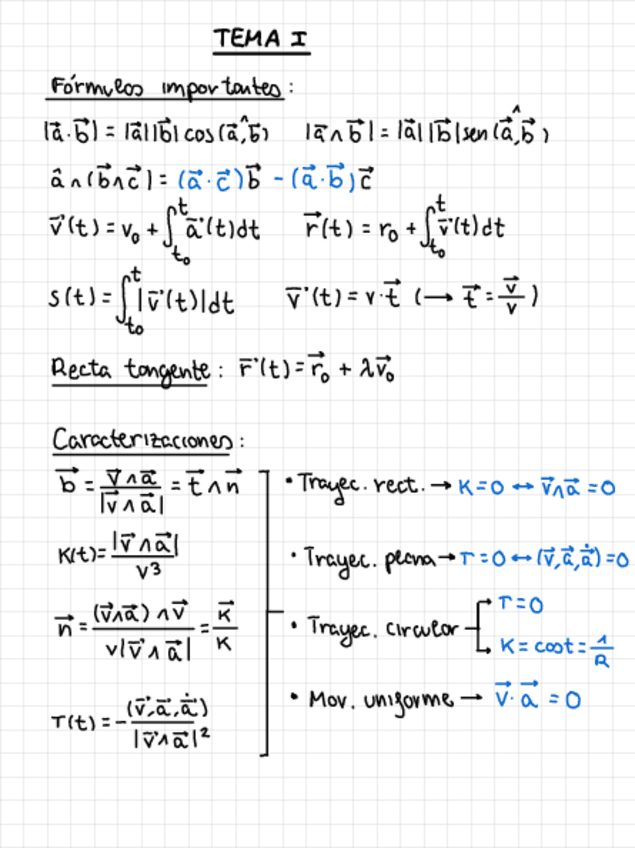 TEMA I
Fórmulas importantes:
|a⃗·b⃗| = |a⃗||b⃗| cos(a⃗,^b⃗)    |a⃗ ∧ b⃗| = |a⃗| |b⃗| sen(a⃗,^b⃗)
â ∧ (b⃗ ∧ c⃗) = (a⃗·c⃗)b⃗ - (a⃗·b⃗)c⃗
v⃗(t) = v₀ + ∫_{t₀}^{t} a⃗(t)dt    r⃗(t) = r₀ + ∫_{t₀}^{t} v⃗(t)dt
s(t) = ∫_{t₀}^{t} |v⃗(t)|dt    v⃗(t) = v·t⃗ (→ t⃗ = v⃗/v)
Recta tangente: r⃗(t) = r⃗₀ + λv⃗₀
Caracterizaciones:
b⃗ = (v⃗ ∧ a⃗)/|v⃗ ∧ a⃗| = t⃗ ∧ n⃗
K(t) = |v⃗ ∧ a⃗|/v³
n⃗ = ((v⃗∧a⃗) ∧ v⃗)/(v|v⃗ ∧ a⃗|) = K⃗/K
T(t) = -(v⃗,a⃗,ȧ⃗)/|v⃗∧a⃗|²
• Trayec. rect. → K=0 ↔ v⃗∧a⃗ = 0
• Trayec. plana → T=0 ↔ (v⃗,a⃗,ȧ⃗)=0
• Trayec. circular
→ T=0
→ K = cost = 1/R
• Mov. uniforme → v⃗·a⃗ = 0